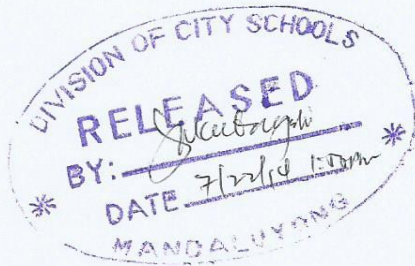 DIVISION OF CITY SCHOOLS
RELEASED
BY:
DATE 7/22/14 1:50pm
* MANDALUYONG *